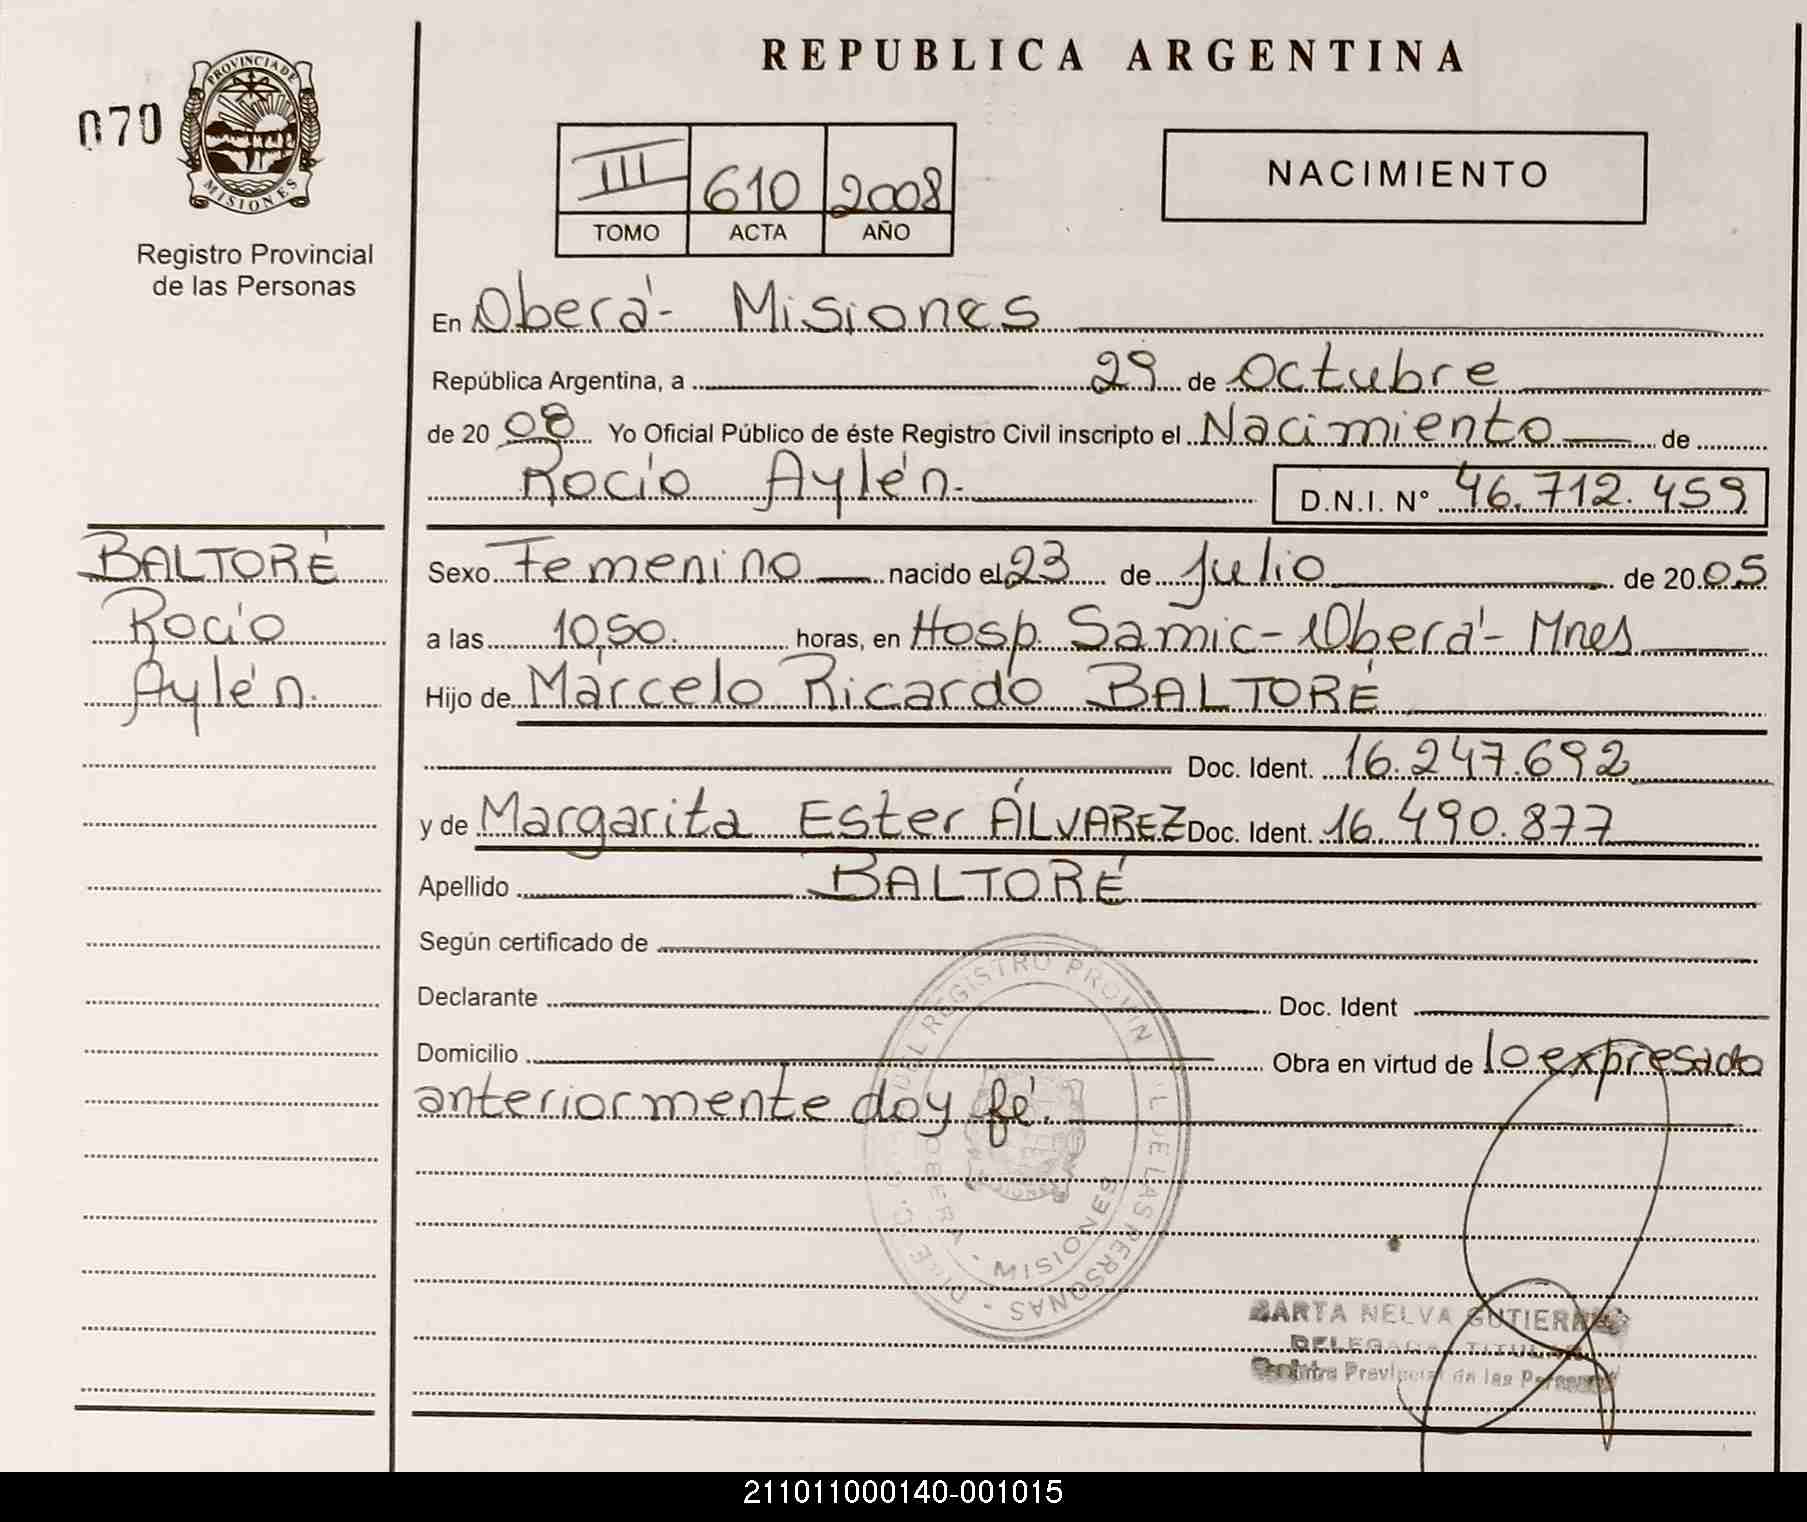 REPUBLICA ARGENTINA
070
PROVINCIA DE
MISIONES
Registro Provincial
de las Personas
III 610 2008
TOMO ACTA AÑO
NACIMIENTO
En Oberá - Misiones
República Argentina, a 29 de Octubre
de 20 08 Yo Oficial Público de éste Registro Civil inscripto el Nacimiento de
Rocío Aylén. D.N.I. N° 46.712.459
BALTORÉ
Rocío
Aylén.
Sexo Femenino nacido el 23 de Julio de 20 05
a las 10,50. horas, en Hosp. Samic - Oberá - Mnes
Hijo de Marcelo Ricardo BALTORÉ
Doc. Ident. 16.247.692
y de Margarita Ester ÁLVAREZ Doc. Ident. 16.490.877
Apellido BALTORÉ
Según certificado de
Declarante Doc. Ident
Domicilio Obra en virtud de lo expresado
anteriormente doy fé.
DEL REGISTRO PROVIN DE LAS PERSONAS
OBERA - MISIONES
MARTA NELVA
DELEGADA TITULAR
Provincial de las Personas
211011000140-001015